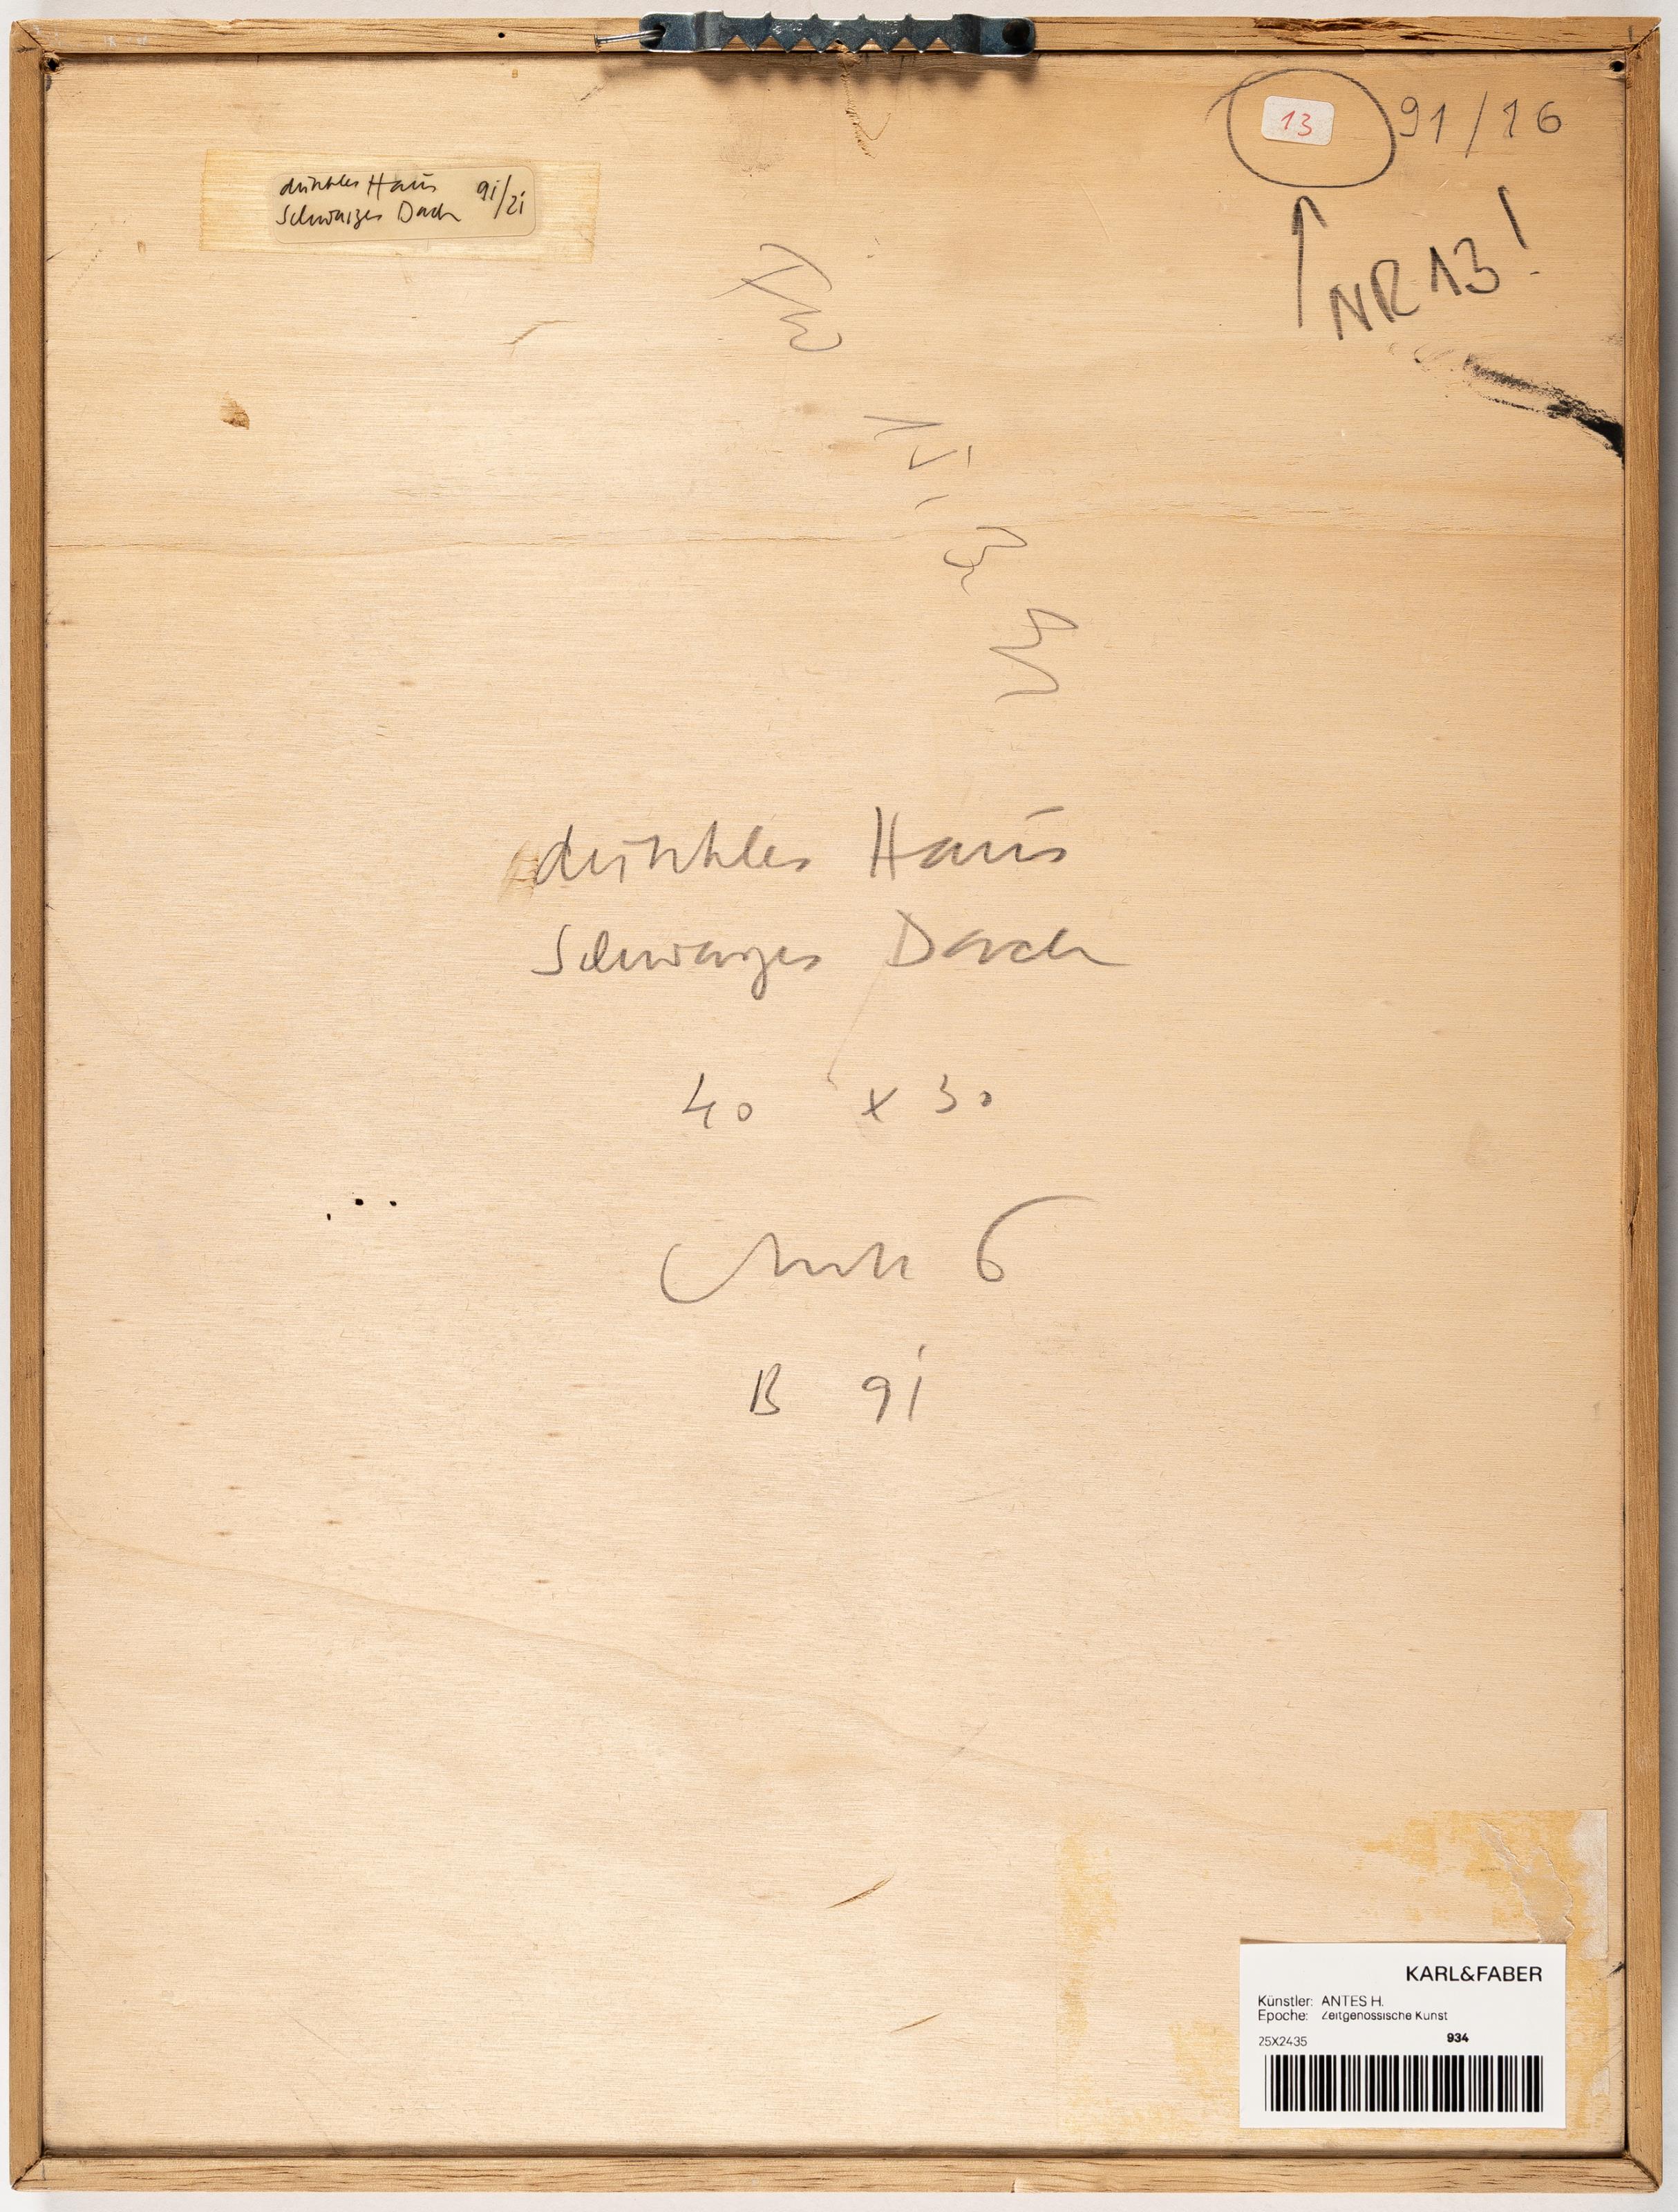 13 91/16
NR 13!
dunkles Haus 91/21
Schwarzes Dach
dunkles Haus
Schwarzes Dach
40 x 30
B 91
KARL&FABER
Künstler: ANTES H.
Epoche: Zeitgenössische Kunst
25X2435 934